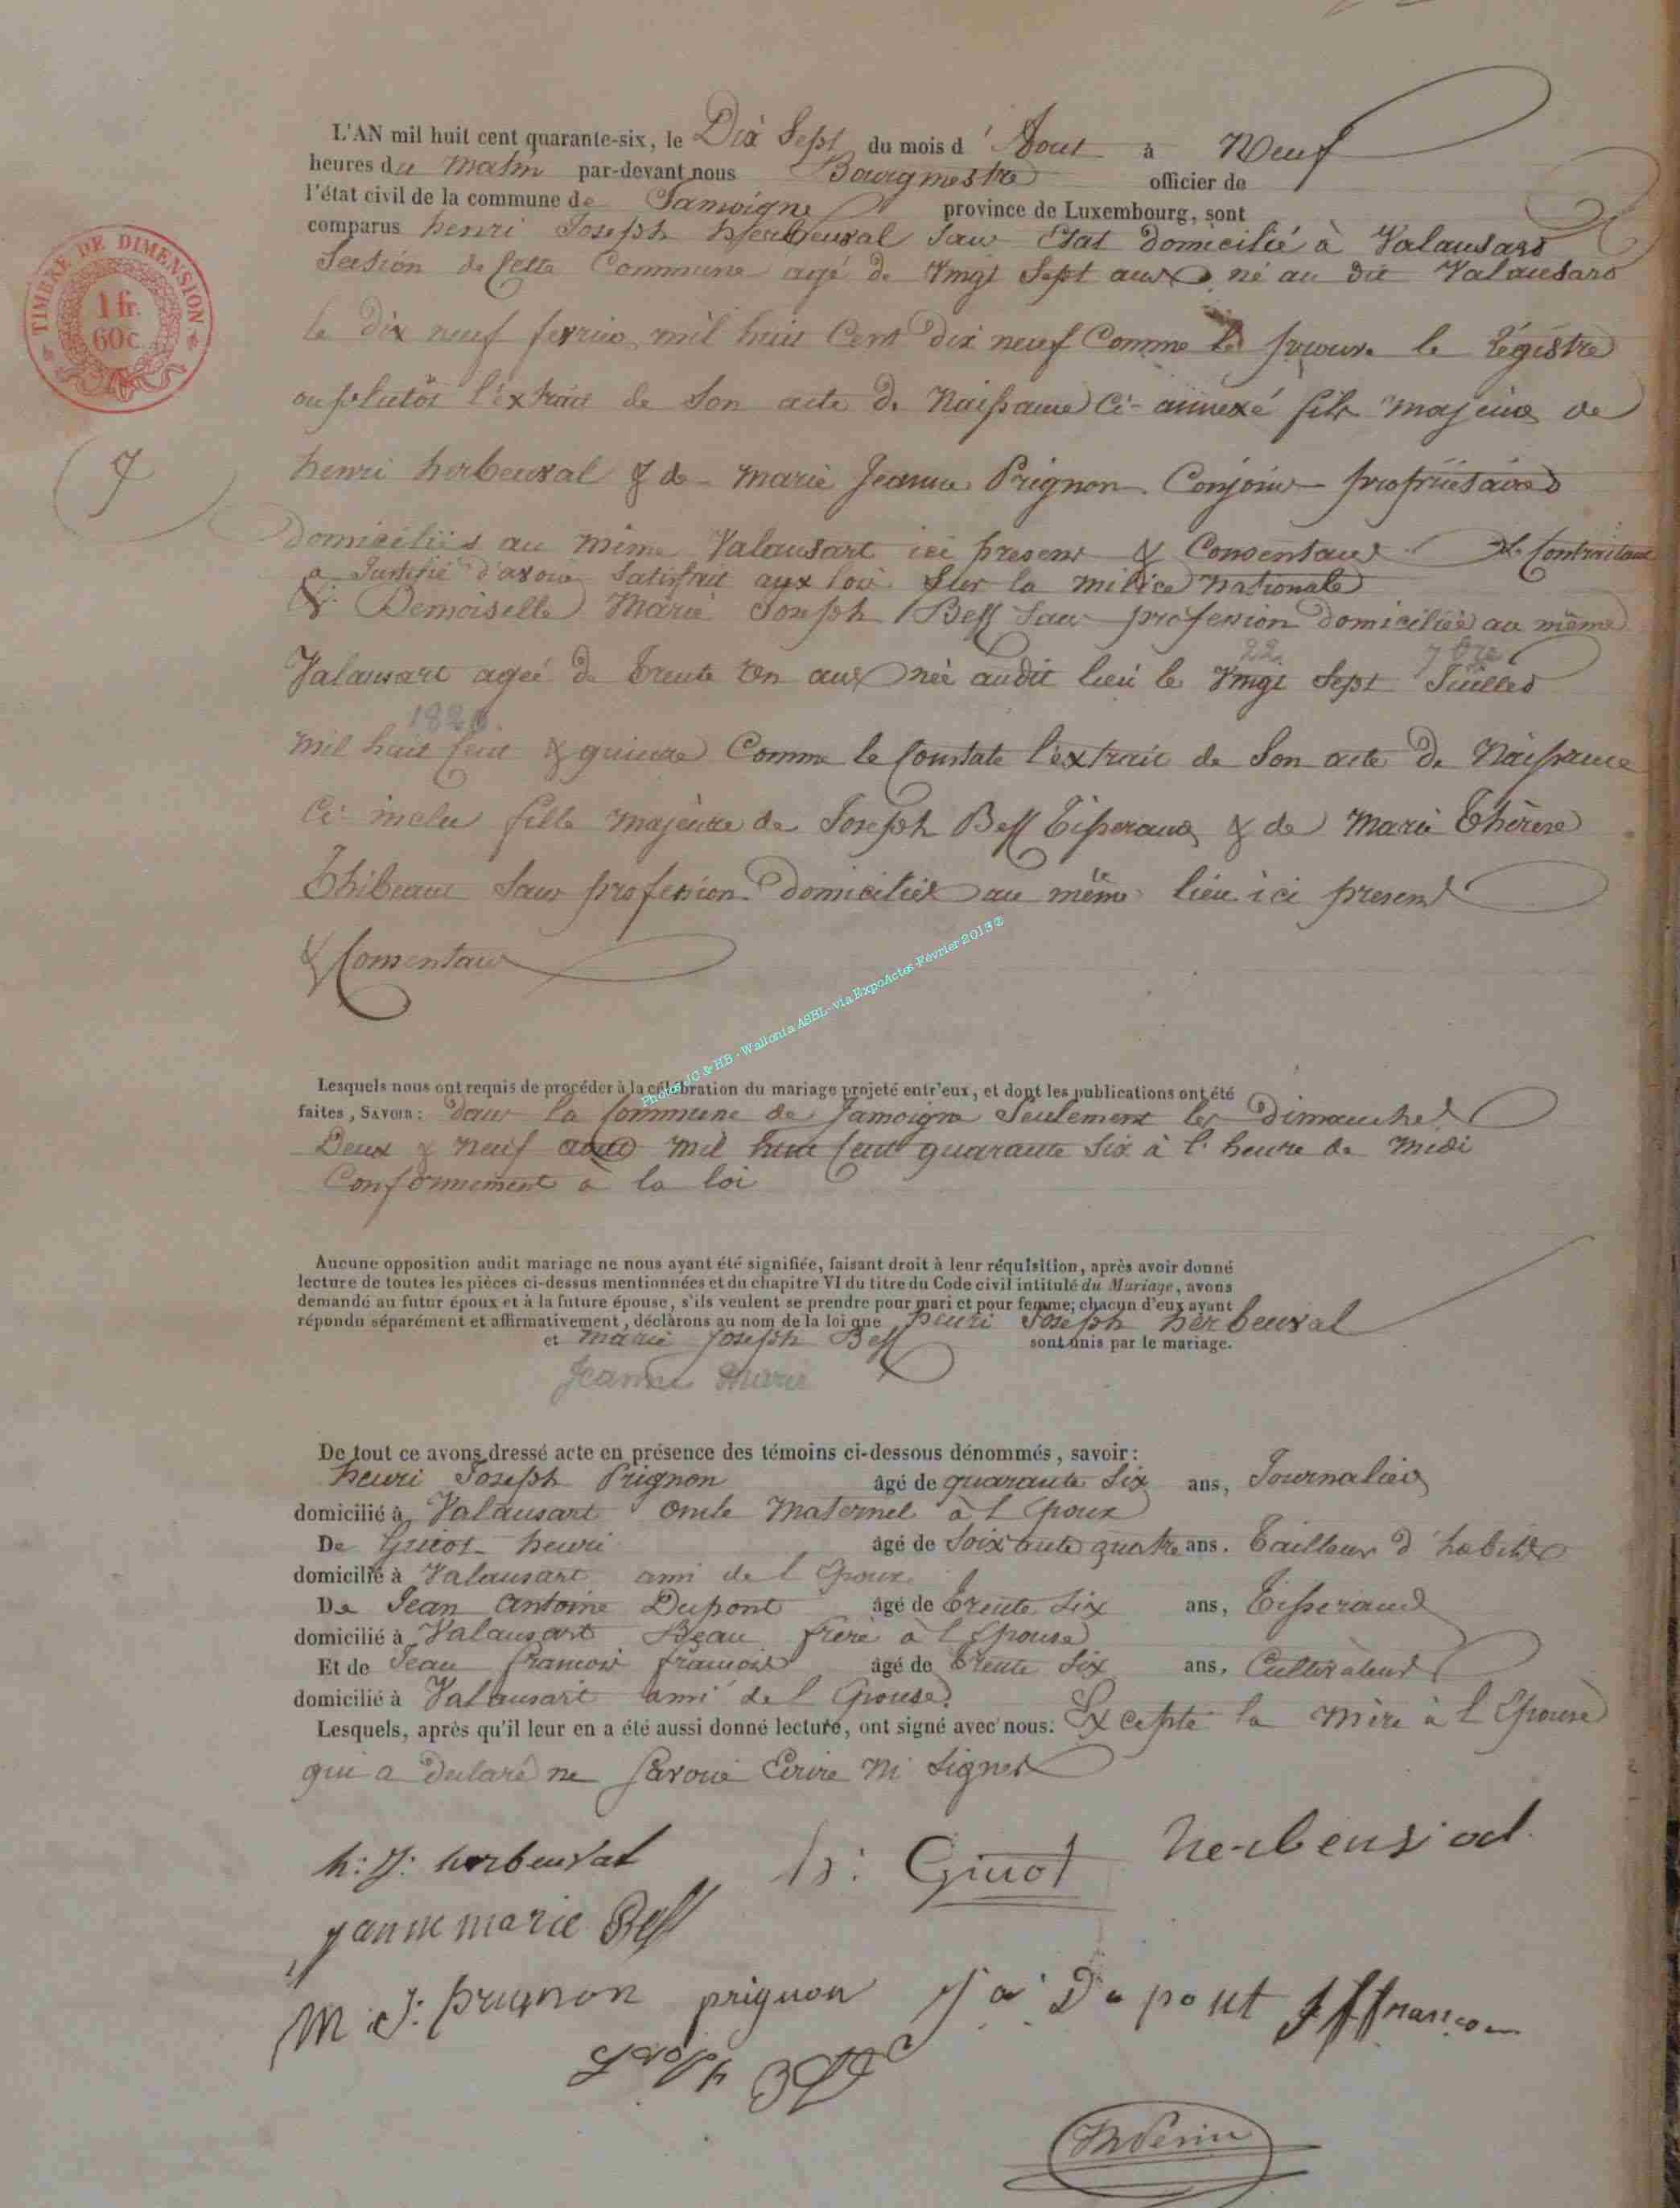 L'AN mil huit cent quarante-six, le Dix Sept du mois d'Aout à Neuf
heures du matin par-devant nous Bourgmestre officier de
l'état civil de la commune de Jamoigne province de Luxembourg, sont
comparus henri Joseph herbeuval Sans Etat domicilié à Valansard
Section de Cette Commune agé de Vingt Sept ans né au dit Valansard
le dix neuf fevrier mil huit Cent dix neuf Comme le prouve le régistre
ou plutôt l'extrait de Son acte de Naissance Ci-annexé fils majeur de
henri herbeuval & de marie Jeanne Prignon Conjoins propriétaires
Domiciliés au même Valansart ici present & Consentans Le Contractant
a Justifié d'avoir Satisfait aux lois Sur la milice nationale
& Demoiselle Marie Joseph Bess Sans profession domiciliée au même
22 7bre
Valansart ageé de trente Un ans née audit lieu le Vingt Sept Juillet
182
mil huit Cent & quinze Comme le Constate l'extrait de Son acte de Naissance
Ci inclu fille majeure de Joseph Bess Tisserand & de Marie Thérèse
Thibeaux Sans profession domiciliés au même lieu ici present
& Consentans
Photos JG & HB - Wallonia ASBL - via ExpoActes - Février 2013 ©
Lesquels nous ont requis de procéder à la célébration du mariage projeté entr'eux, et dont les publications ont été
faites, SAVOIR: dans la Commune de Jamoigne Seulement les Dimanches
Deux & neuf aout mil huit Cent quarante Six à l'heure de midi
Conformement à la loi
Aucune opposition audit mariage ne nous ayant été signifiée, faisant droit à leur réquisition, après avoir donné
lecture de toutes les pièces ci-dessus mentionnées et du chapitre VI du titre du Code civil intitulé du Mariage, avons
demandé au futur époux et à la future épouse, s'ils veulent se prendre pour mari et pour femme; chacun d'eux ayant
répondu séparément et affirmativement, déclarons au nom de la loi que henri Joseph herbeuval
et marie Joseph Bess sont unis par le mariage.
Jeanne Marie
De tout ce avons dressé acte en présence des témoins ci-dessous dénommés, savoir:
henri Joseph Prignon âgé de quarante Six ans, Journalier
domicilié à Valansart oncle maternel à l'Epoux
De Guiot henri âgé de Soixante quatre ans. Tailleur d'habits
domicilié à Valansart ami de l'Epoux
De Jean Antoine Dupont âgé de Trente Six ans, Tisserand
domicilié à Valansart Beau frère à l'Epouse
Et de Jean françois françois âgé de Trente Six ans, Cultivateur
domicilié à Valansart ami de l'Epouse
Lesquels, après qu'il leur en a été aussi donné lecture, ont signé avec nous. Excepté la Mère à l'Epouse
qui a declaré ne Savoir Ecrire ni Signer
TIMBRE DE DIMENSION
1 fr.
60 c.
7
h: J: herbeuval h: Guiot herbeuval
janne marie Bess
M: J: prignon prignon J a Dupont J f francois
Joseph Bess